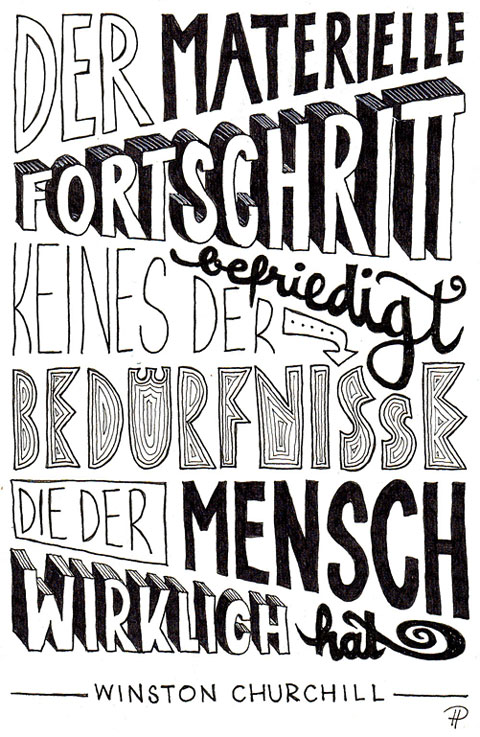 DER MATERIELLE
FORTSCHRITT
befriedigt
KEINES DER
BEDÜRFNISSE
DIE DER MENSCH
WIRKLICH hat
WINSTON CHURCHILL